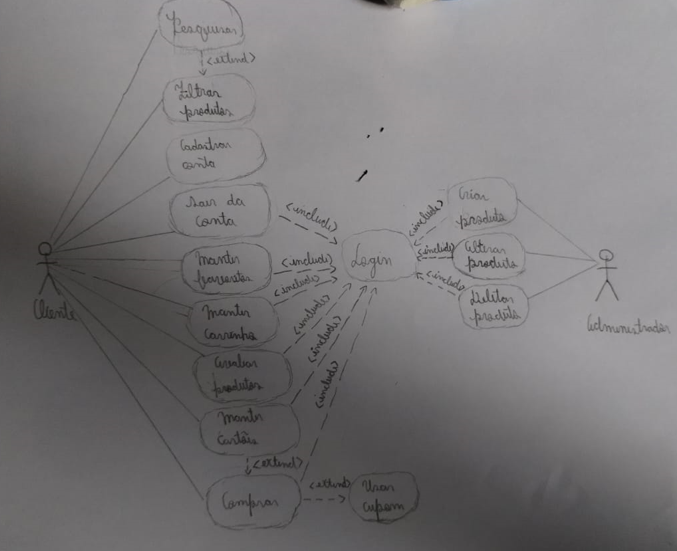 Pesquisar
<extend>
Filtrar
produtos
Cadastrar
conta
Sair da
conta
<include>
Manter
favoritos
<include>
Manter
Carrinho
<include>
Avaliar
produtos
<include>
Manter
Cartões
<include>
<extend>
Comprar
<include>
<extend>
Usar
cupom
Login
Cliente
<include>
Criar
produto
<include>
Alterar
produto
<include>
Deletar
produto
Administrador